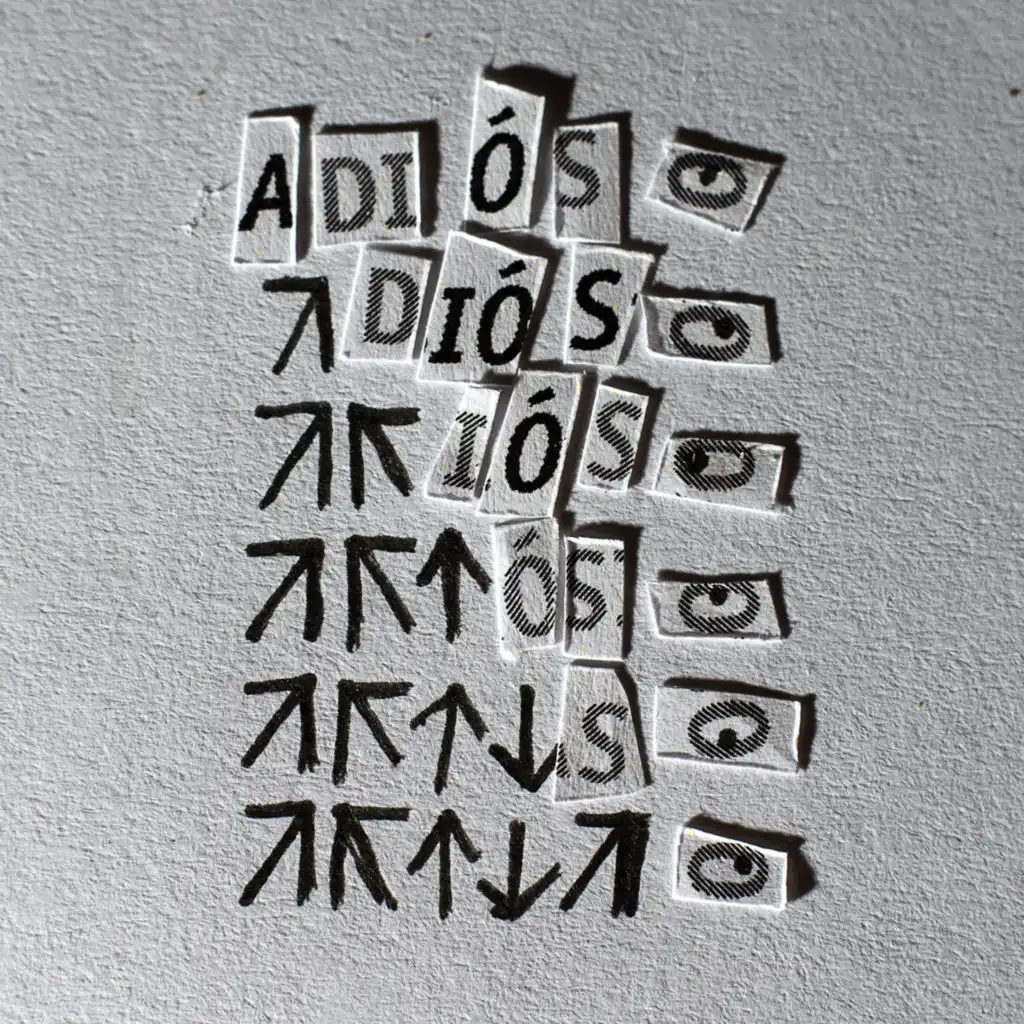 ADIÓS
↗DIÓS
↗↖IÓS
↗↖↑ÓS
↗↖↑↓S
↗↖↑↓↗